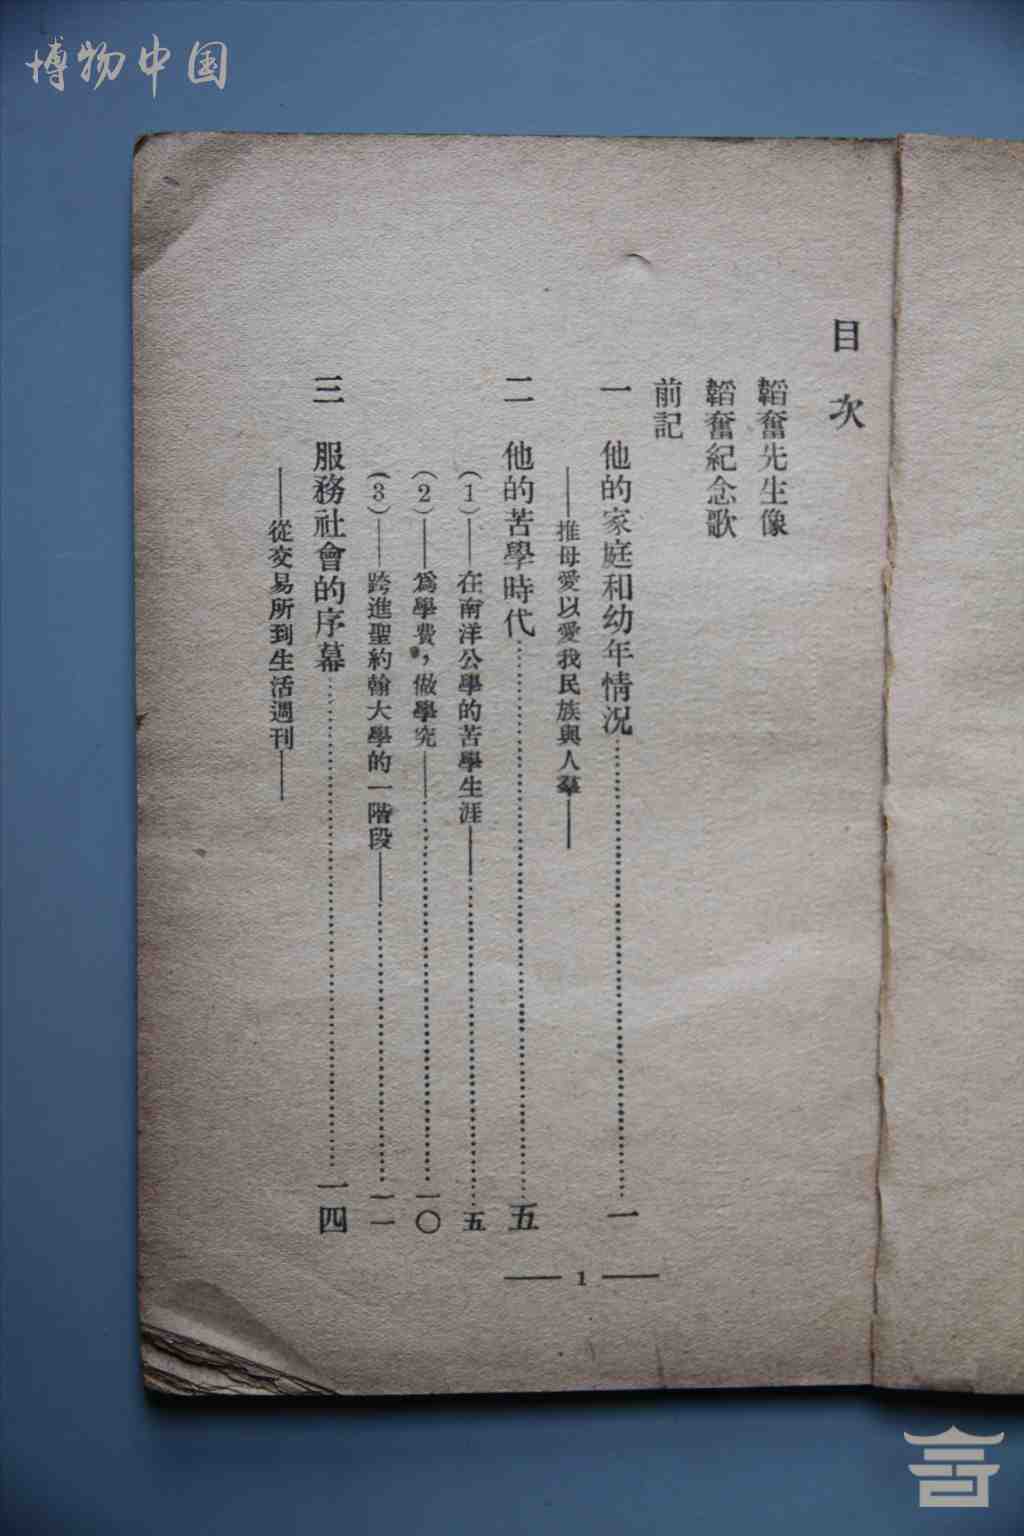 博物中国
目次
韜奮先生像
韜奮紀念歌
前記
一 他的家庭和幼年情況…………一
——推母愛以愛我民族與人羣——
二 他的苦學時代…………五
(1)——在南洋公學的苦學生涯——…………五
(2)——爲學費，做學究——…………一〇
(3)——跨進聖約翰大學的一階段——…………一一
三 服務社會的序幕…………一四
——從交易所到生活週刊——
—— 1 ——